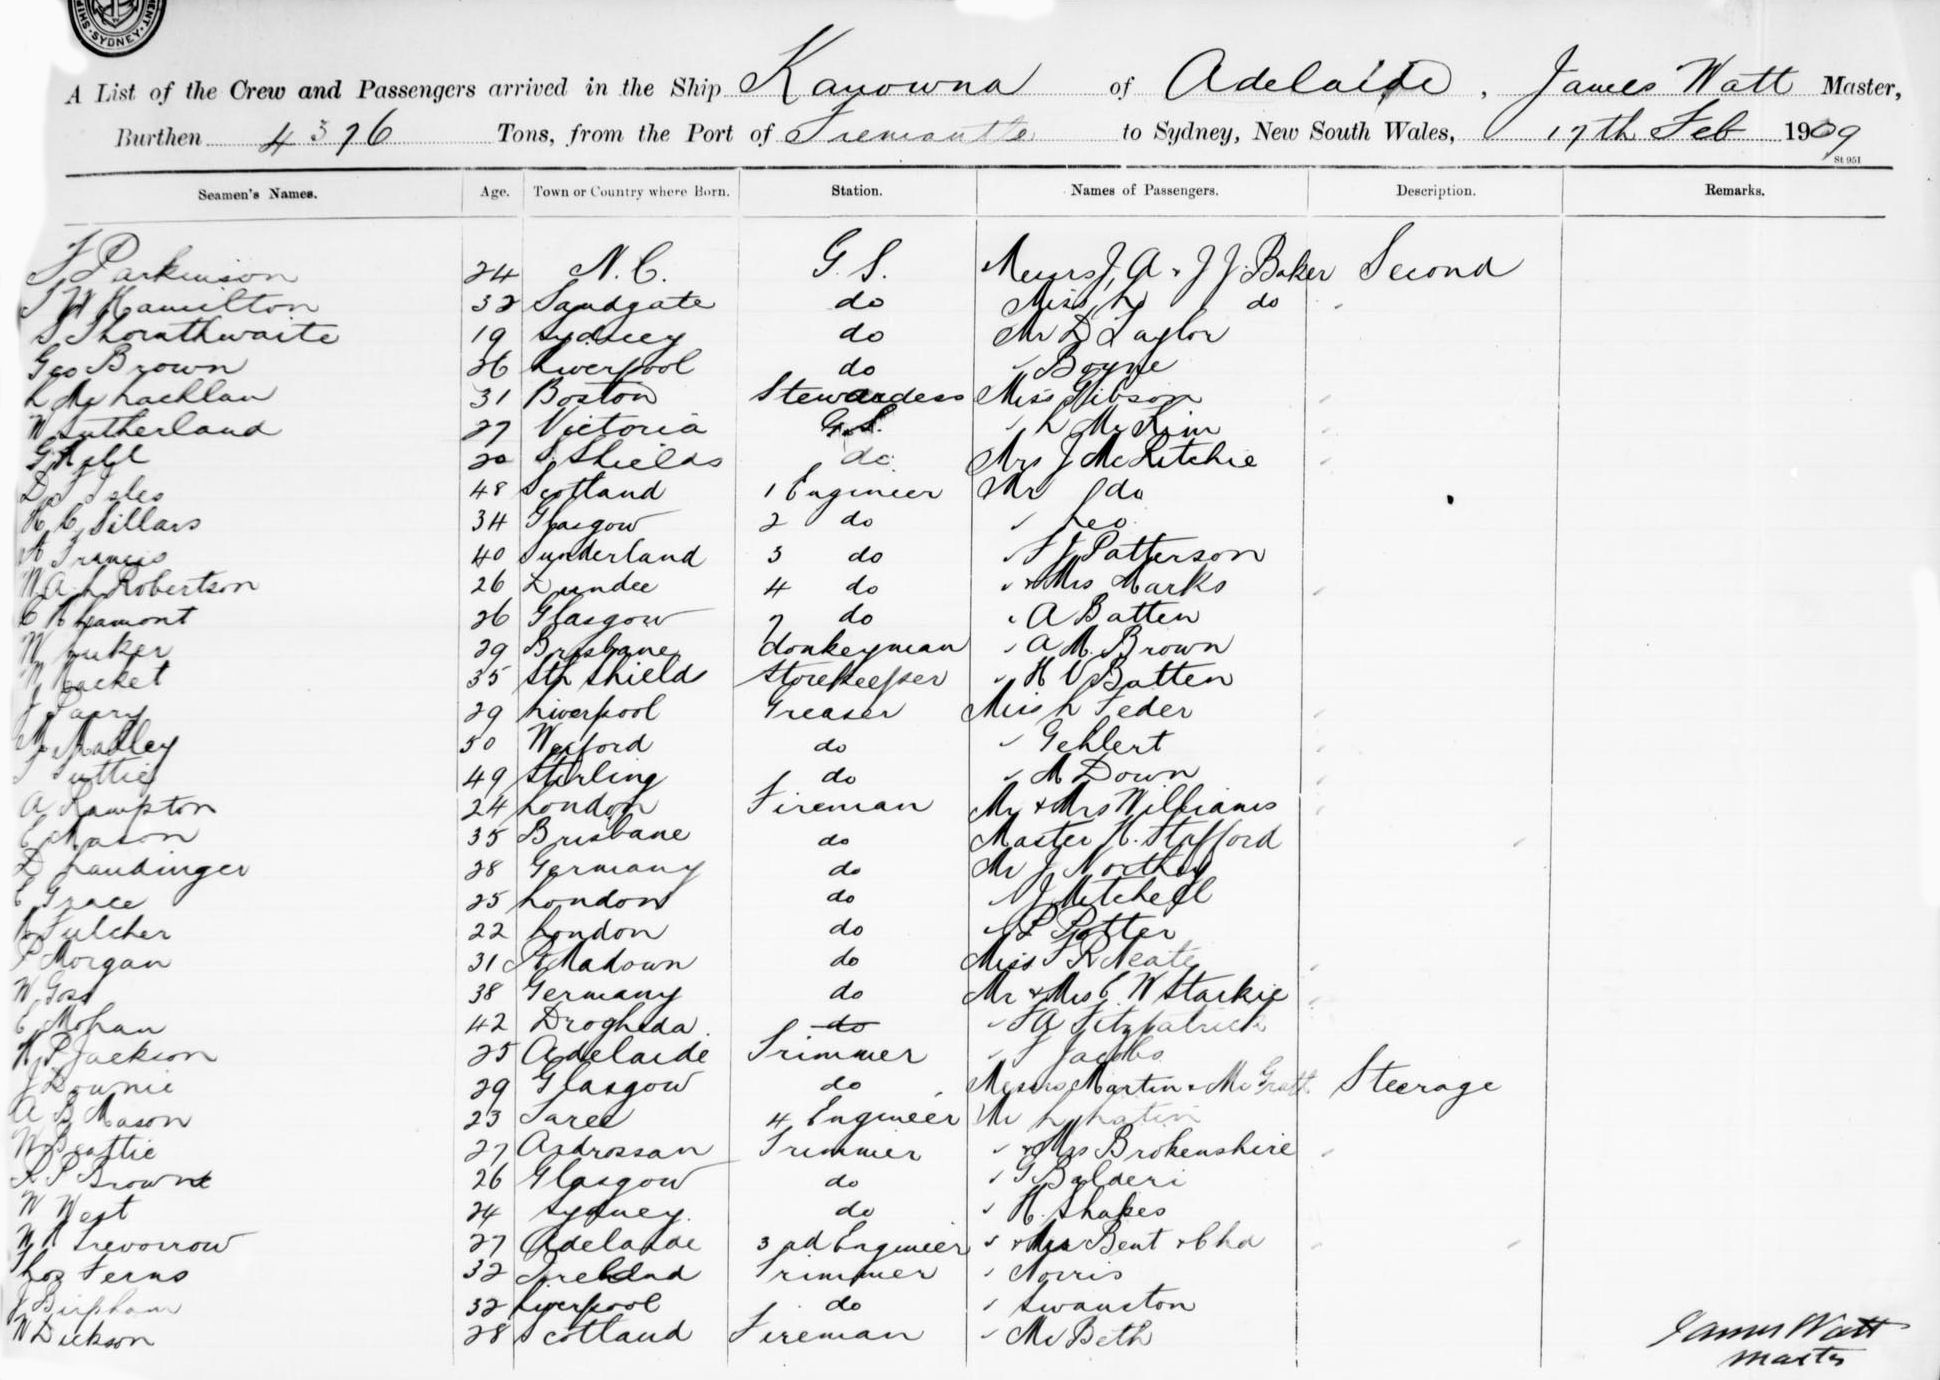 SYDNEY
A List of the Crew and Passengers arrived in the Ship Kanowna of Adelaide, James Watt Master,
Burthen 4376 Tons, from the Port of Fremantle to Sydney, New South Wales, 17th Feb 1909
St 951
Seamen's Names. Age. Town or Country where Born. Station. Names of Passengers. Description. Remarks.
Parkinson 24 N.C. G.S. Messrs J, A & J J Baker Second
Hamilton 32 Sandgate do Miss L do
S Thornthwaite 19 Sydney do Mr D Taylor
Geo Brown 26 Liverpool do " Boyne
L McLachlan 31 Boston Stewardess Miss Gibson
W Sutherland 27 Victoria G.S. " L McKim
G 20 S. Shields do Mrs J McRitchie
D 48 Scotland 1 Engineer Mr J do
H C Sillars 34 Glasgow 2 do " Leo
A Francis 40 Sunderland 3 do " F J Patterson
W A L Robertson 26 Dundee 4 do " & Mrs Marks
C 26 Glasgow do " A Batten
W 29 Brisbane donkeyman " A M Brown
35 Sth Shields Storekeeper " H V Batten
J Parry 29 Liverpool Greaser Miss L Feder
M Madley 50 Wexford do " Gehlert
49 Stirling do " M Down
A Rampton 24 London Fireman Mr & Mrs Williams
E Mason 35 Brisbane do Master H. Stafford
D Laudinger 28 Germany do Mr J Northey
E Grace 25 London do " J Mitchell
Fulcher 22 London do " P Potter
P Morgan 31 do Miss F R Neate
W Goss 38 Germany do Mr & Mrs C. W Starkie
C Mohan 42 Drogheda do " F A Fitzpatrick
H P Jackson 25 Adelaide Trimmer " Jacobs
J Downie 29 Glasgow do Messrs Martin & McGrath Steerage
A B Mason 23 Taree 4 Engineer Mr L
W Beattie 27 Ardrossan Trimmer " & Mrs Brokenshire
R P Brown 26 Glasgow do " G Balderi
W West 24 Sydney do " H. Shakes
W Trevorrow 27 Adelaide 3rd Engineer " & Mrs Bent & Chd
Thos Ferns 32 Ireland Trimmer " Norris
J Bigham 32 Liverpool do " Swanston
W Dickson 28 Scotland Fireman " McBeth
James Watt
Master